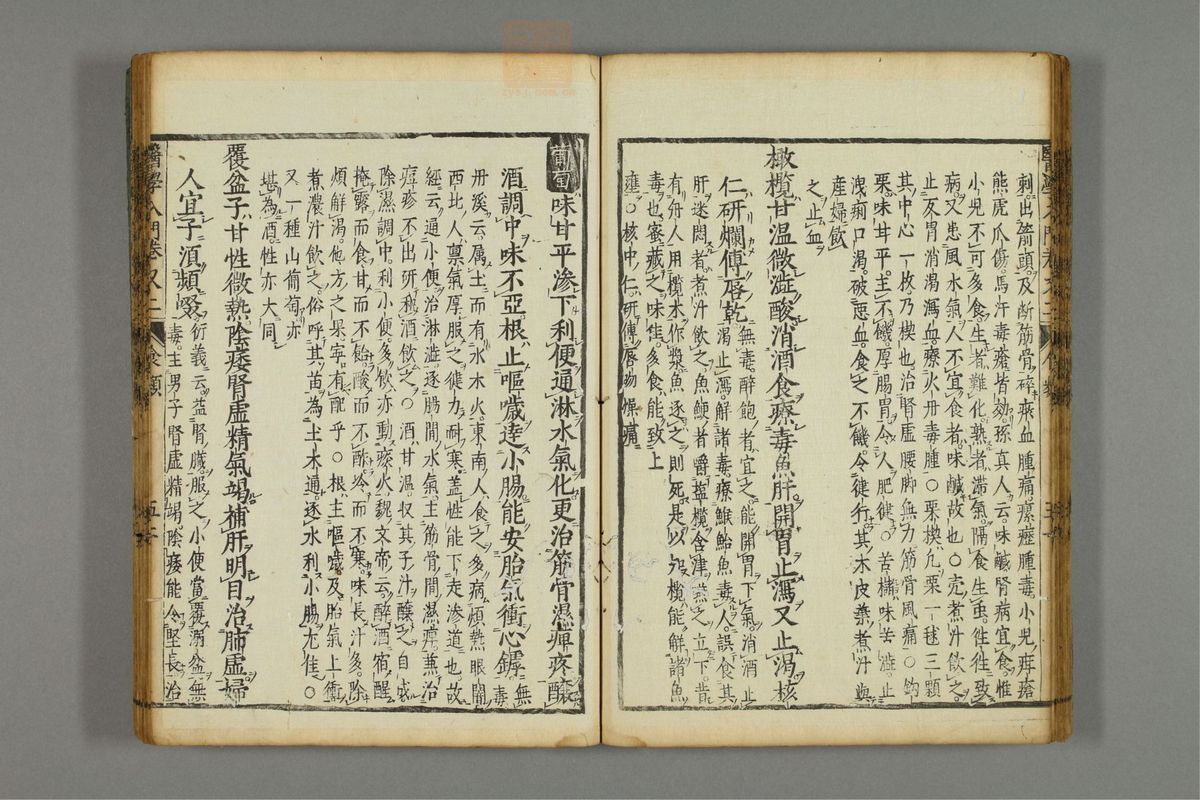 刺出箭頭及斷筋骨碎瘀血腫痛瘰癧腫毒小兒疳瘡
熊虎爪傷馬汗毒瘡皆効孫真人云味鹹腎病宜食惟
小兒不可多食生者難化熟者滯氣隔食生虫往往致
病又患風水氣人不宜食者味鹹故也○壳煮汁飲之
止反胃消渴瀉血療火丹毒腫○栗楔凢栗一毬三顆
其中心一枚乃楔也治腎虛腰脚無力筋骨風痛○鈎
栗味甘平主不饑厚腸胃令人肥健○苦櫧味苦澁止
洩痢口渴破惡血食之不饑令健行其木皮葉煮汁與
産婦飲
之止血
橄欖甘温微澁酸消酒食療毒魚肝開胃止瀉又止渴核
仁研爛傅唇乾無毒醉飽者宜之能開胃下氣消酒止
渴止瀉解諸毒療鯸鮐魚毒人誤食其
肝迷悶者煮汁飲之魚鯁者嚼塩欖含津嚥之立下昔
有舟人用欖木作槳魚逐之則死是以知欖能解諸魚
毒也蜜藏之味佳多食能致上
壅○核中仁研傅唇吻燥痛
葡萄味甘平滲下利便通淋水氣化更治筋骨濕痺疼釀
酒調中味不亞根止嘔噦逹小腸能安胎氣衝心罅無
毒
丹溪云属土而有水木火東南人食之多病煩熱眼闇
西北人禀氣厚服之健力耐寒盖性能下走滲道也故
經云通小便治淋澁逐腸間水氣主筋骨間濕痺兼治
瘡疹不出研和酒飲之○酒甘温収其子汁釀之自成
除濕調中利小便多飲亦動痰火魏文帝云醉酒宿醒
掩露而食甘而不飴酸而不酢冷而不寒味長汁多除
煩解渴他方之果寧有配乎○根主嘔噦及胎氣上衝
煮濃汁飲之俗呼其苗為土木通逐水利小腸尤佳○
又一種山葡萄亦
堪為酒性亦大同
覆盆子甘性微熱陰痿腎虛精氣竭補肝明目治肺虛婦
人宜子湏頻啜衍義云益腎臟服之小便當覆溺盆無
毒主男子腎虛精竭陰痿能令堅長治
醫學入門卷 又二 食類 五十